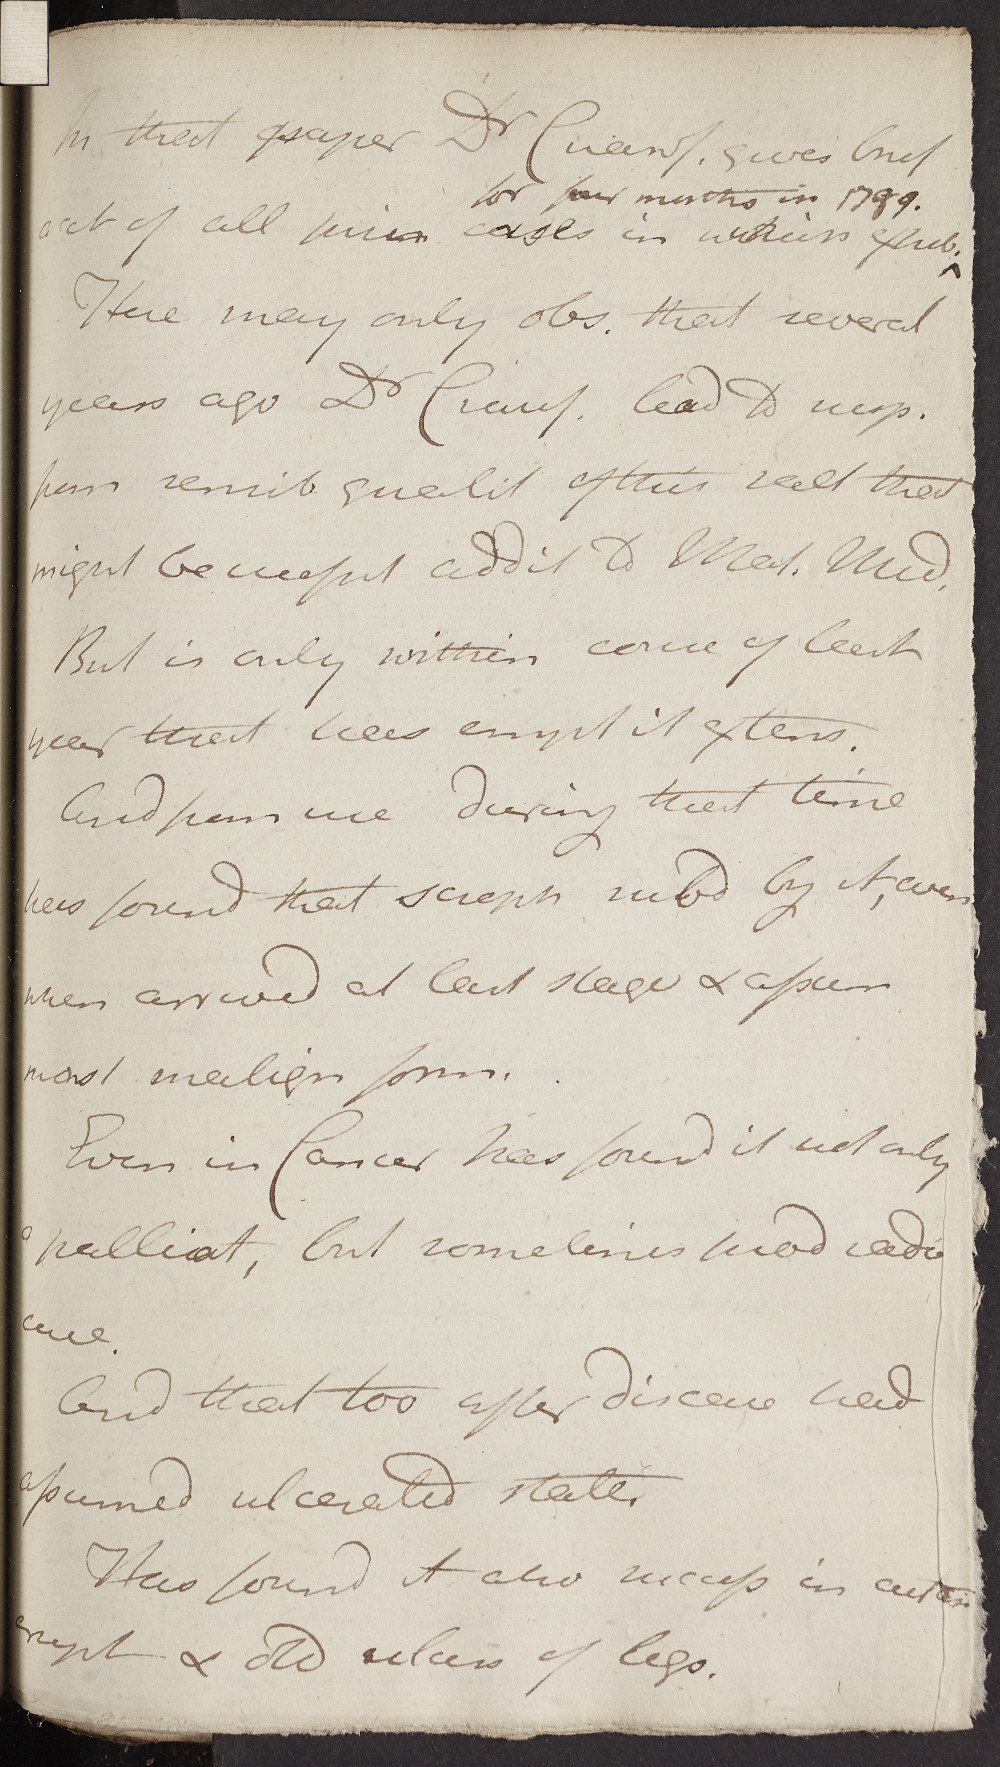 In that paper Dr Crawf. gives brief
for four months in 1789.
act of all prin cases in which exhib.
Here may only obs. that several
years ago Dr Crawf. lead to susp.
from sensib qualit of this salt that
might be useful addit to Mat. Med.
But is only within course of last
year that has empl it extens.
And from use during that time
has found that scroph subd by it, even
when arrived at last stage & assum
most malign form.
Even in Cancer has found it not only
a palliat, but sometimes prod radic
cure.
And that too after disease had
assumed ulcerated state.
Has found it also success in cutan
erupt & old ulcers of legs.